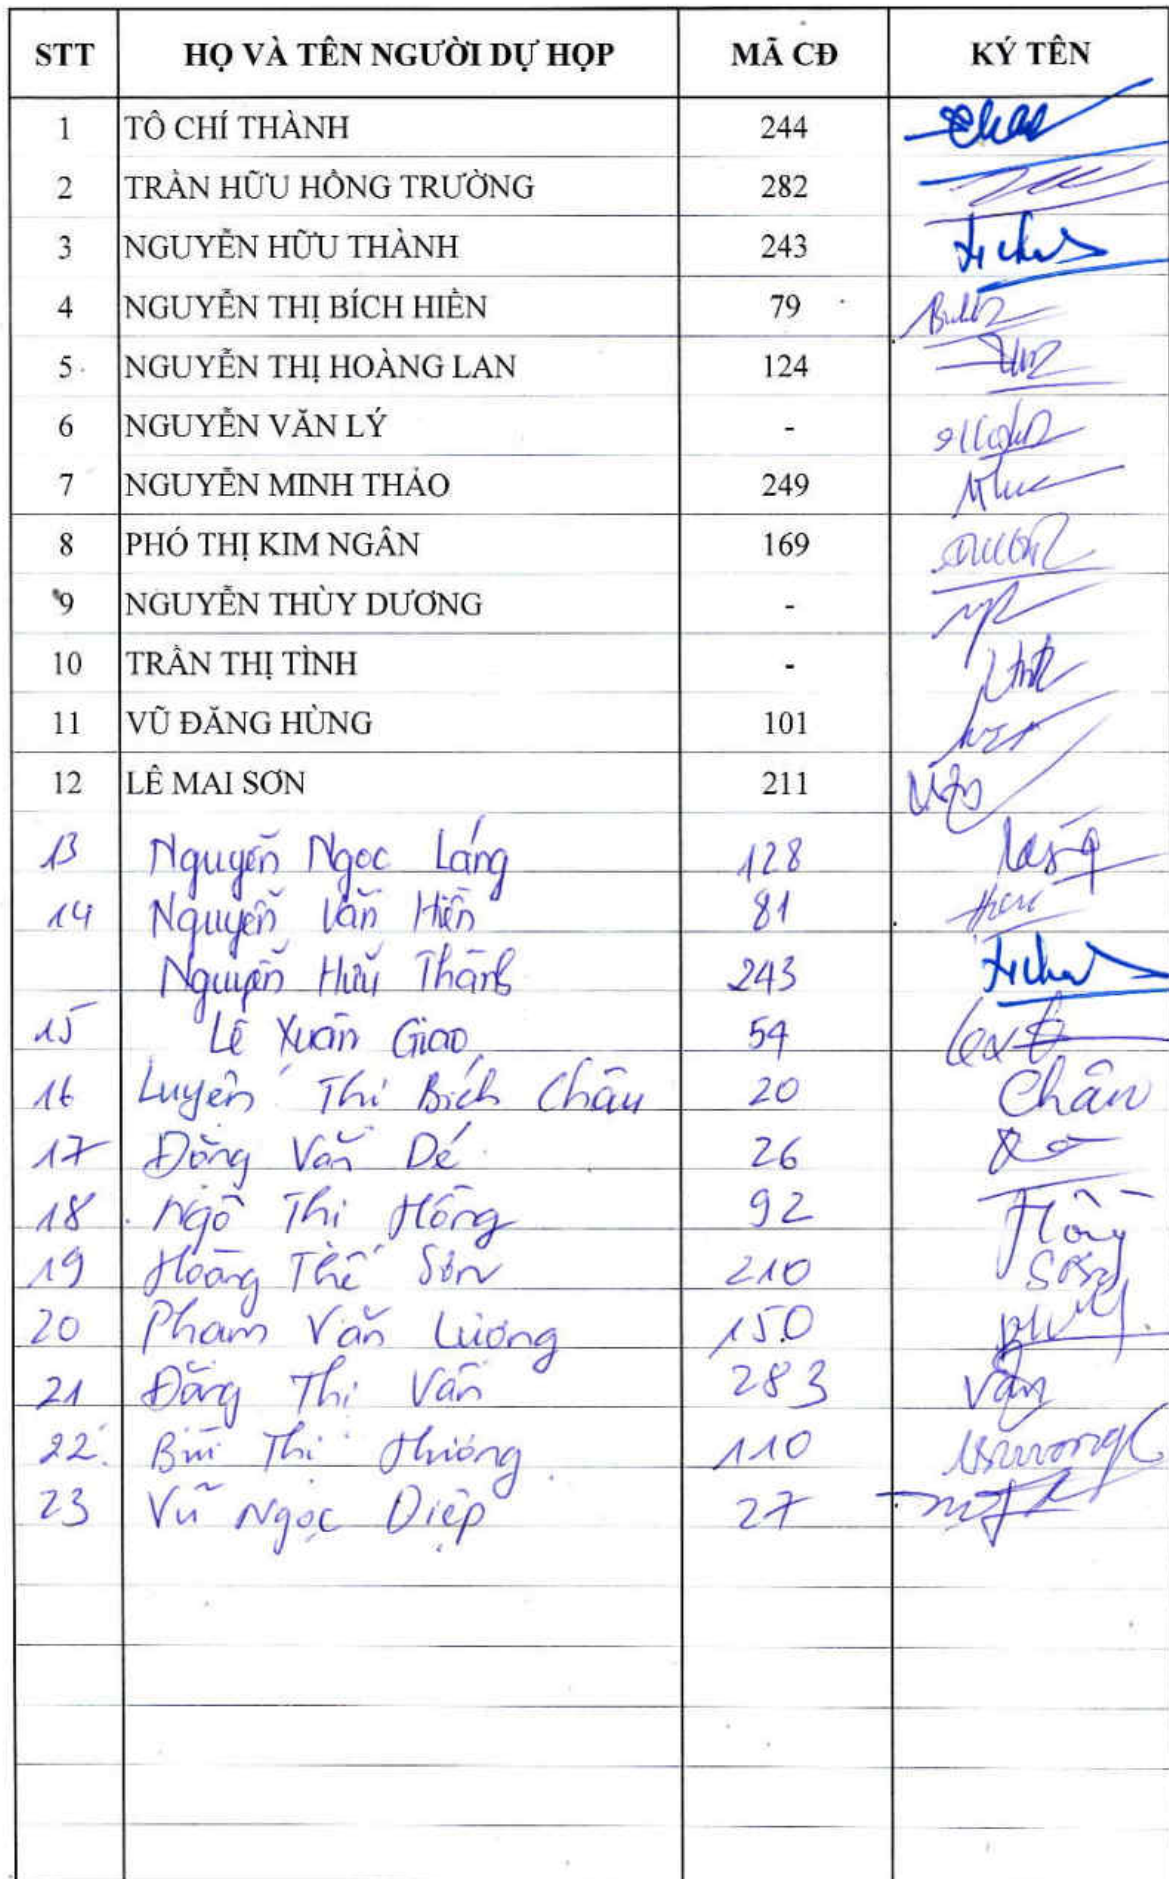 STT HỌ VÀ TÊN NGƯỜI DỰ HỌP MÃ CĐ KÝ TÊN
1 TÔ CHÍ THÀNH 244
2 TRẦN HỮU HỒNG TRƯỜNG 282
3 NGUYỄN HỮU THÀNH 243
4 NGUYỄN THỊ BÍCH HIỀN 79
5 NGUYỄN THỊ HOÀNG LAN 124
6 NGUYỄN VĂN LÝ -
7 NGUYỄN MINH THẢO 249
8 PHÓ THỊ KIM NGÂN 169
9 NGUYỄN THÙY DƯƠNG -
10 TRẦN THỊ TÌNH -
11 VŨ ĐĂNG HÙNG 101
12 LÊ MAI SƠN 211
13 Nguyễn Ngọc Láng 128
14 Nguyễn Văn Hiền 81
Nguyễn Hữu Thành 243
15 Lê Xuân Giao 54
16 Luyện Thị Bích Châu 20 Châu
17 Đồng Văn Dé 26
18 Ngô Thị Hồng 92 Hồng
19 Hoàng Thế Sơn 210 Sơn
20 Phạm Văn Lương 150
21 Đặng Thị Vân 283 Vân
22. Bùi Thị Hương 110
23 Vũ Ngọc Diệp 27